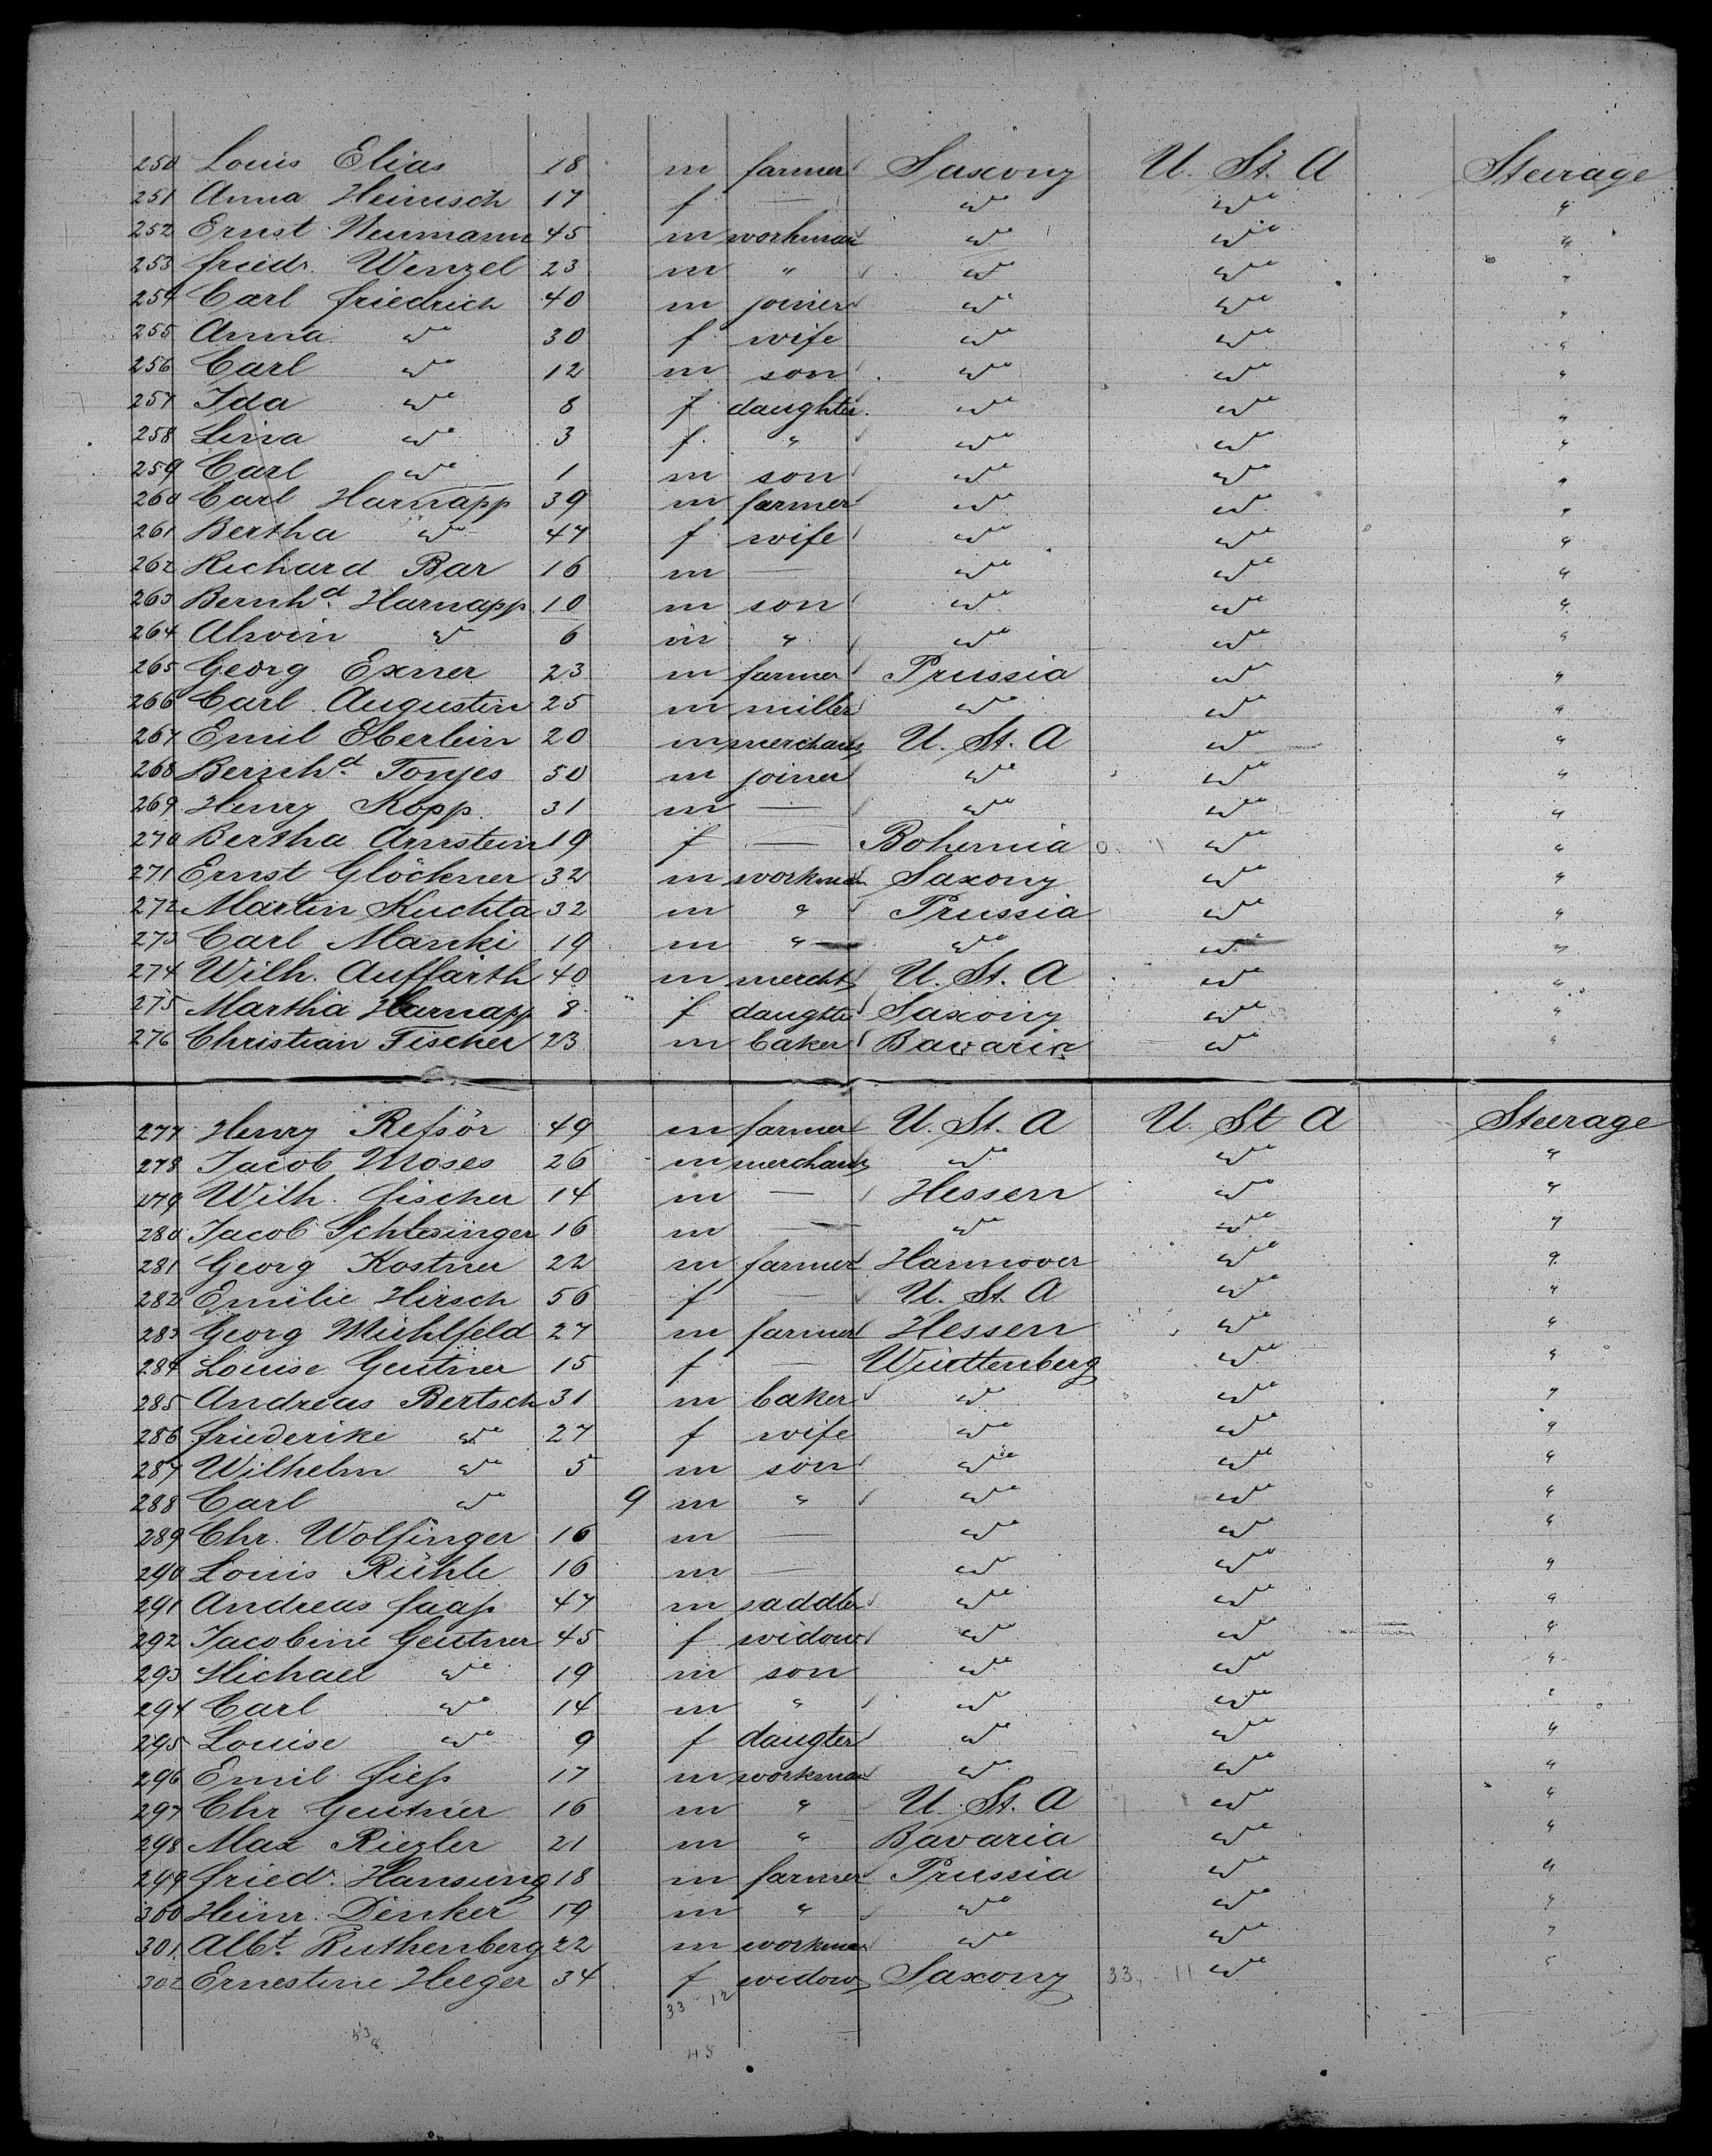 250 Louis Elias 18 m farmer Saxony U. St. A Steerage
251 Anna Heinisch 17 f — do do "
252 Ernst Neumann 45 m workman do do "
253 Friedr. Wenzel 23 m " do do "
254 Carl Friedrich 40 m joiner do do "
255 Anna do 30 f wife do do "
256 Carl do 12 m son do do "
257 Ida do 8 f daughter do do "
258 Lina do 3 f " do do "
259 Carl do 1 m son do do "
260 Carl Harnapp 39 m farmer do do "
261 Bertha do 47 f wife do do "
262 Richard Bar 16 m — do do "
263 Bernhd. Harnapp 10 m son do do "
264 Alwin do 6 m " do do "
265 Georg Exner 23 m farmer Prussia do "
266 Carl Augustin 25 m miller do do "
267 Emil Eberlein 20 m merchant U. St. A do "
268 Bernhd. Tonjes 50 m joiner do do "
269 Henry Kopp 31 m — do do "
270 Bertha Arnstein 19 f — Bohemia do "
271 Ernst Glöckner 32 m workman Saxony do "
272 Martin Kuchta 32 m " Prussia do "
273 Carl Manki 19 m " do do "
274 Wilh. Auffarth 40 m mercht U. St. A do "
275 Martha Harnapp 8 f daugter Saxony do "
276 Christian Fischer 23 m baker Bavaria do "
277 Henry Refsör 49 m farmer U. St. A U. St A Steerage
278 Jacob Moses 26 m merchant do do "
279 Wilh. Fischer 14 m — Hessen do "
280 Jacob Schlesinger 16 m — do do "
281 Georg Kostner 22 m farmer Hannover do "
282 Emilie Hirsch 56 f — U. St. A do "
283 Georg Mühlfeld 27 m farmer Hessen do "
284 Louise Gentner 15 f — Württenberg do "
285 Andreas Bertsch 31 m baker do do "
286 Friederike do 27 f wife do do "
287 Wilhelm do 5 m son do do "
288 Carl do 9 m " do do "
289 Chr. Wolfinger 16 m — do do "
290 Louis Rühle 16 m — do do "
291 Andreas Faass 47 m saddler do do "
292 Jacobine Gentner 45 f widow do do "
293 Michael do 19 m son do do "
294 Carl do 14 m " do do "
295 Louise do 9 f daugter do do "
296 Emil Fiess 17 m workman do do "
297 Chr Gentner 16 m " U. St. A do "
298 Max Riezler 21 m " Bavaria do "
299 Friedr. Hansung 18 m farmer Prussia do "
300 Heinr. Dinker 19 m " do do "
301 Albt. Ruthenberg 22 m workman do do "
302 Ernestine Heeger 34 f widow Saxony 33, 11 do "
33 12